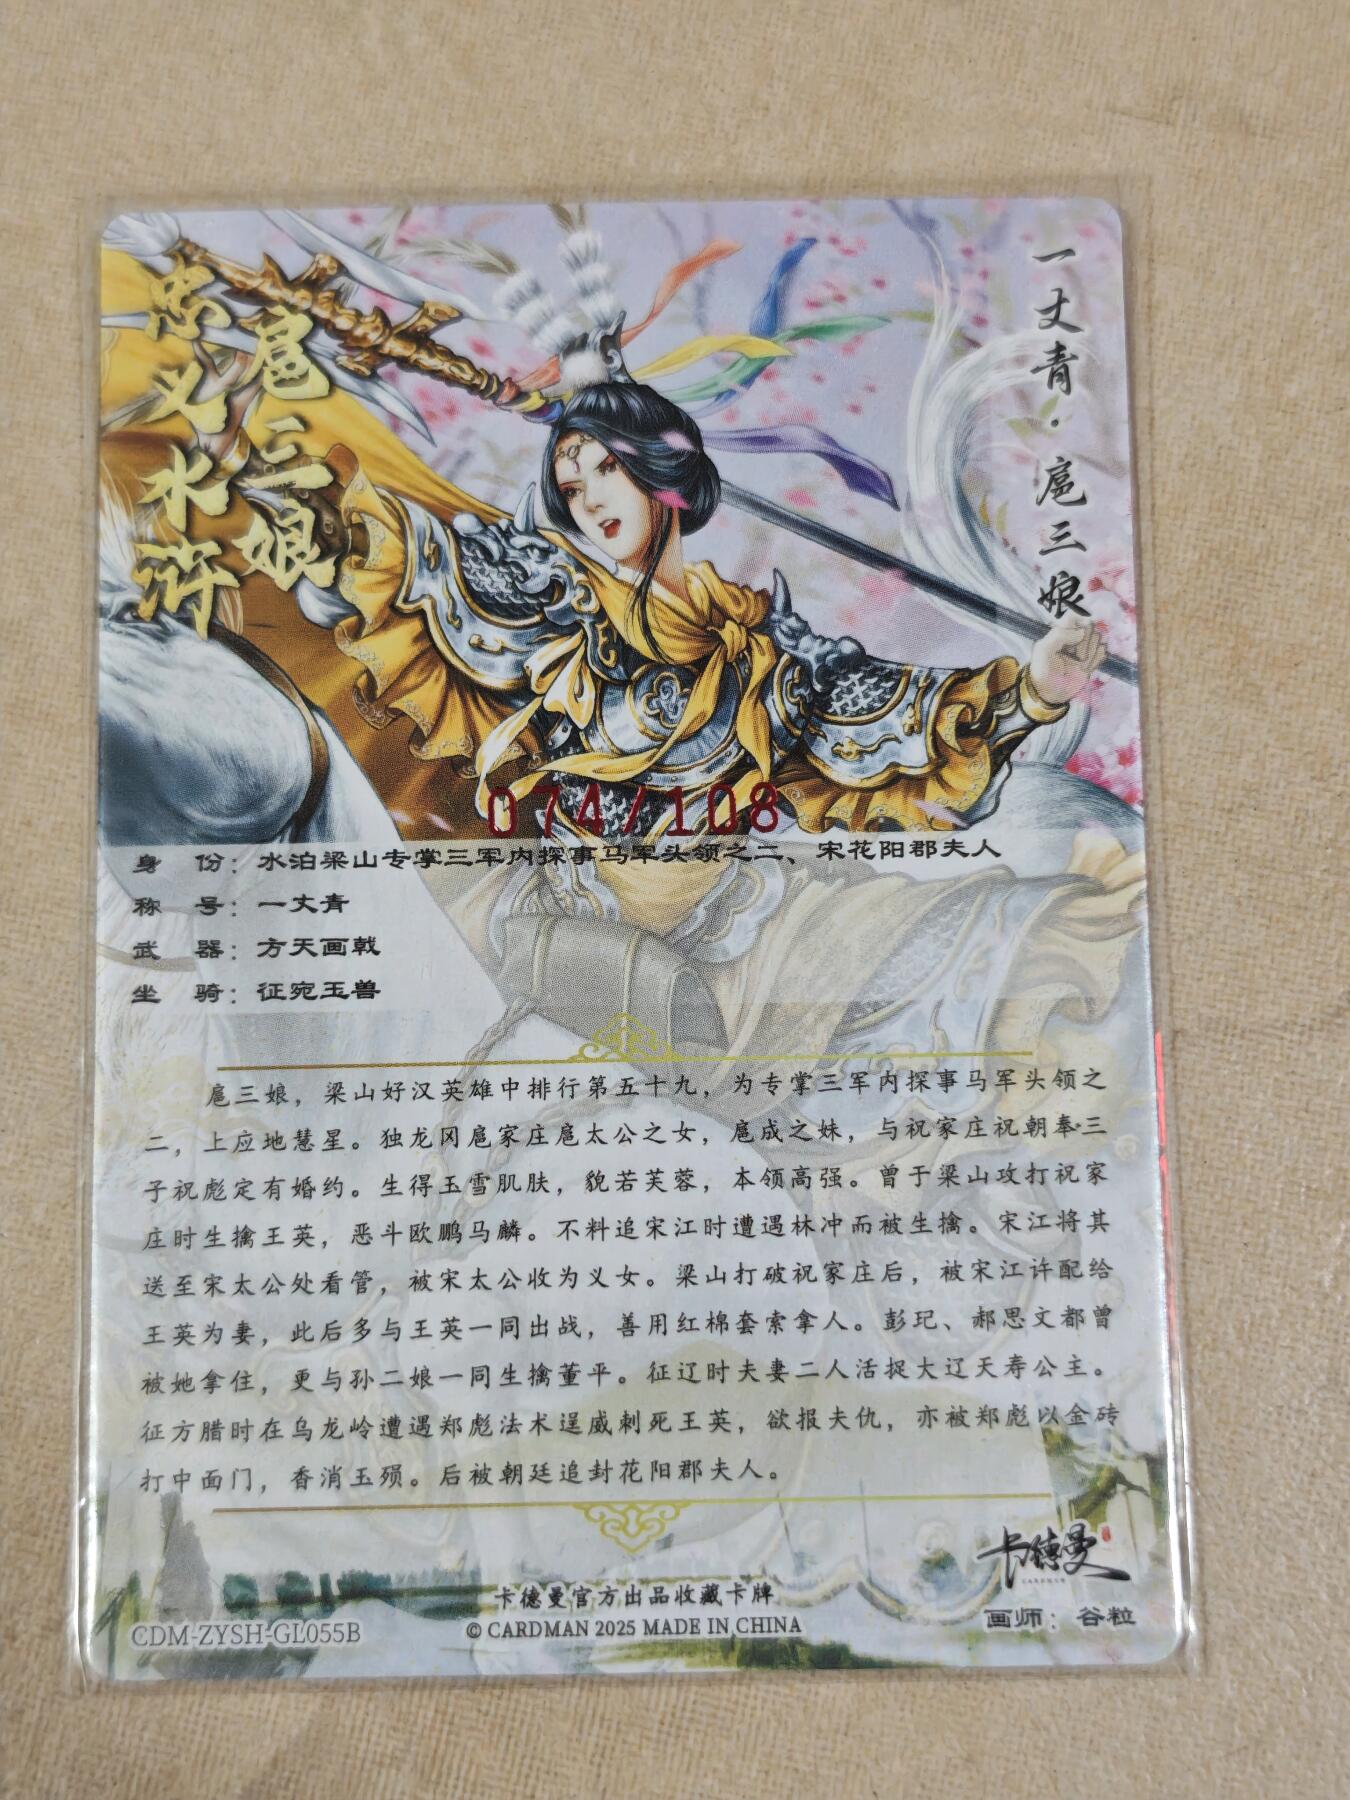 忠义水浒
扈三娘
一丈青·扈三娘
074/108
身 份：水泊梁山专掌三军内探事马军头领之二、宋花阳郡夫人
称 号：一丈青
武 器：方天画戟
坐 骑：征宛玉兽
扈三娘，梁山好汉英雄中排行第五十九，为专掌三军内探事马军头领之
二，上应地慧星。独龙冈扈家庄扈太公之女，扈成之妹，与祝家庄祝朝奉三
子祝彪定有婚约。生得玉雪肌肤，貌若芙蓉，本领高强。曾于梁山攻打祝家
庄时生擒王英，恶斗欧鹏马麟。不料追宋江时遭遇林冲而被生擒。宋江将其
送至宋太公处看管，被宋太公收为义女。梁山打破祝家庄后，被宋江许配给
王英为妻，此后多与王英一同出战，善用红棉套索拿人。彭玘、郝思文都曾
被她拿住，更与孙二娘一同生擒董平。征辽时夫妻二人活捉大辽天寿公主。
征方腊时在乌龙岭遭遇郑彪法术逞威刺死王英，欲报夫仇，亦被郑彪以金砖
打中面门，香消玉殒。后被朝廷追封花阳郡夫人。
卡德曼
CARDMAN
卡德曼官方出品收藏卡牌
CDM-ZYSH-GL055B
© CARDMAN 2025 MADE IN CHINA
画师：谷粒